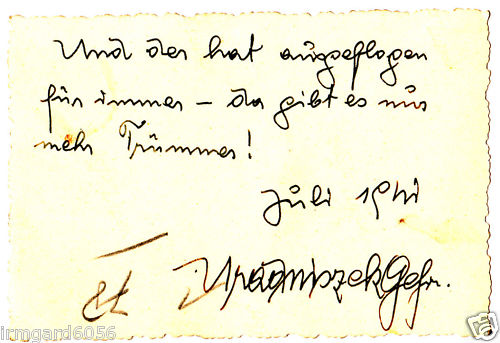 Und der hat ausgeflogen
für immer – da gibt es nur
mehr Trümmer!
Juli 1941
Gefr.
irmgard6056